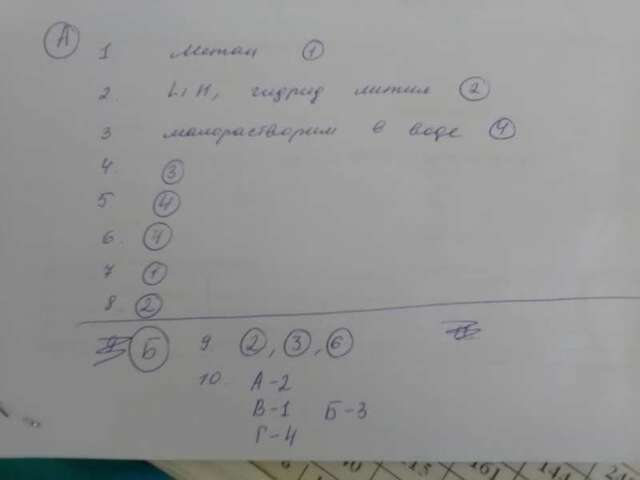 А
1 Метан 1
2. LiH, гидрид лития 2
3 малорастворим в воде 4
4. 3
5 4
6. 4
7 1
8. 2
Б 9 2, 3, 6
10. А-2
В-1 Б-3
Г-4
6 10 13 161 144 24